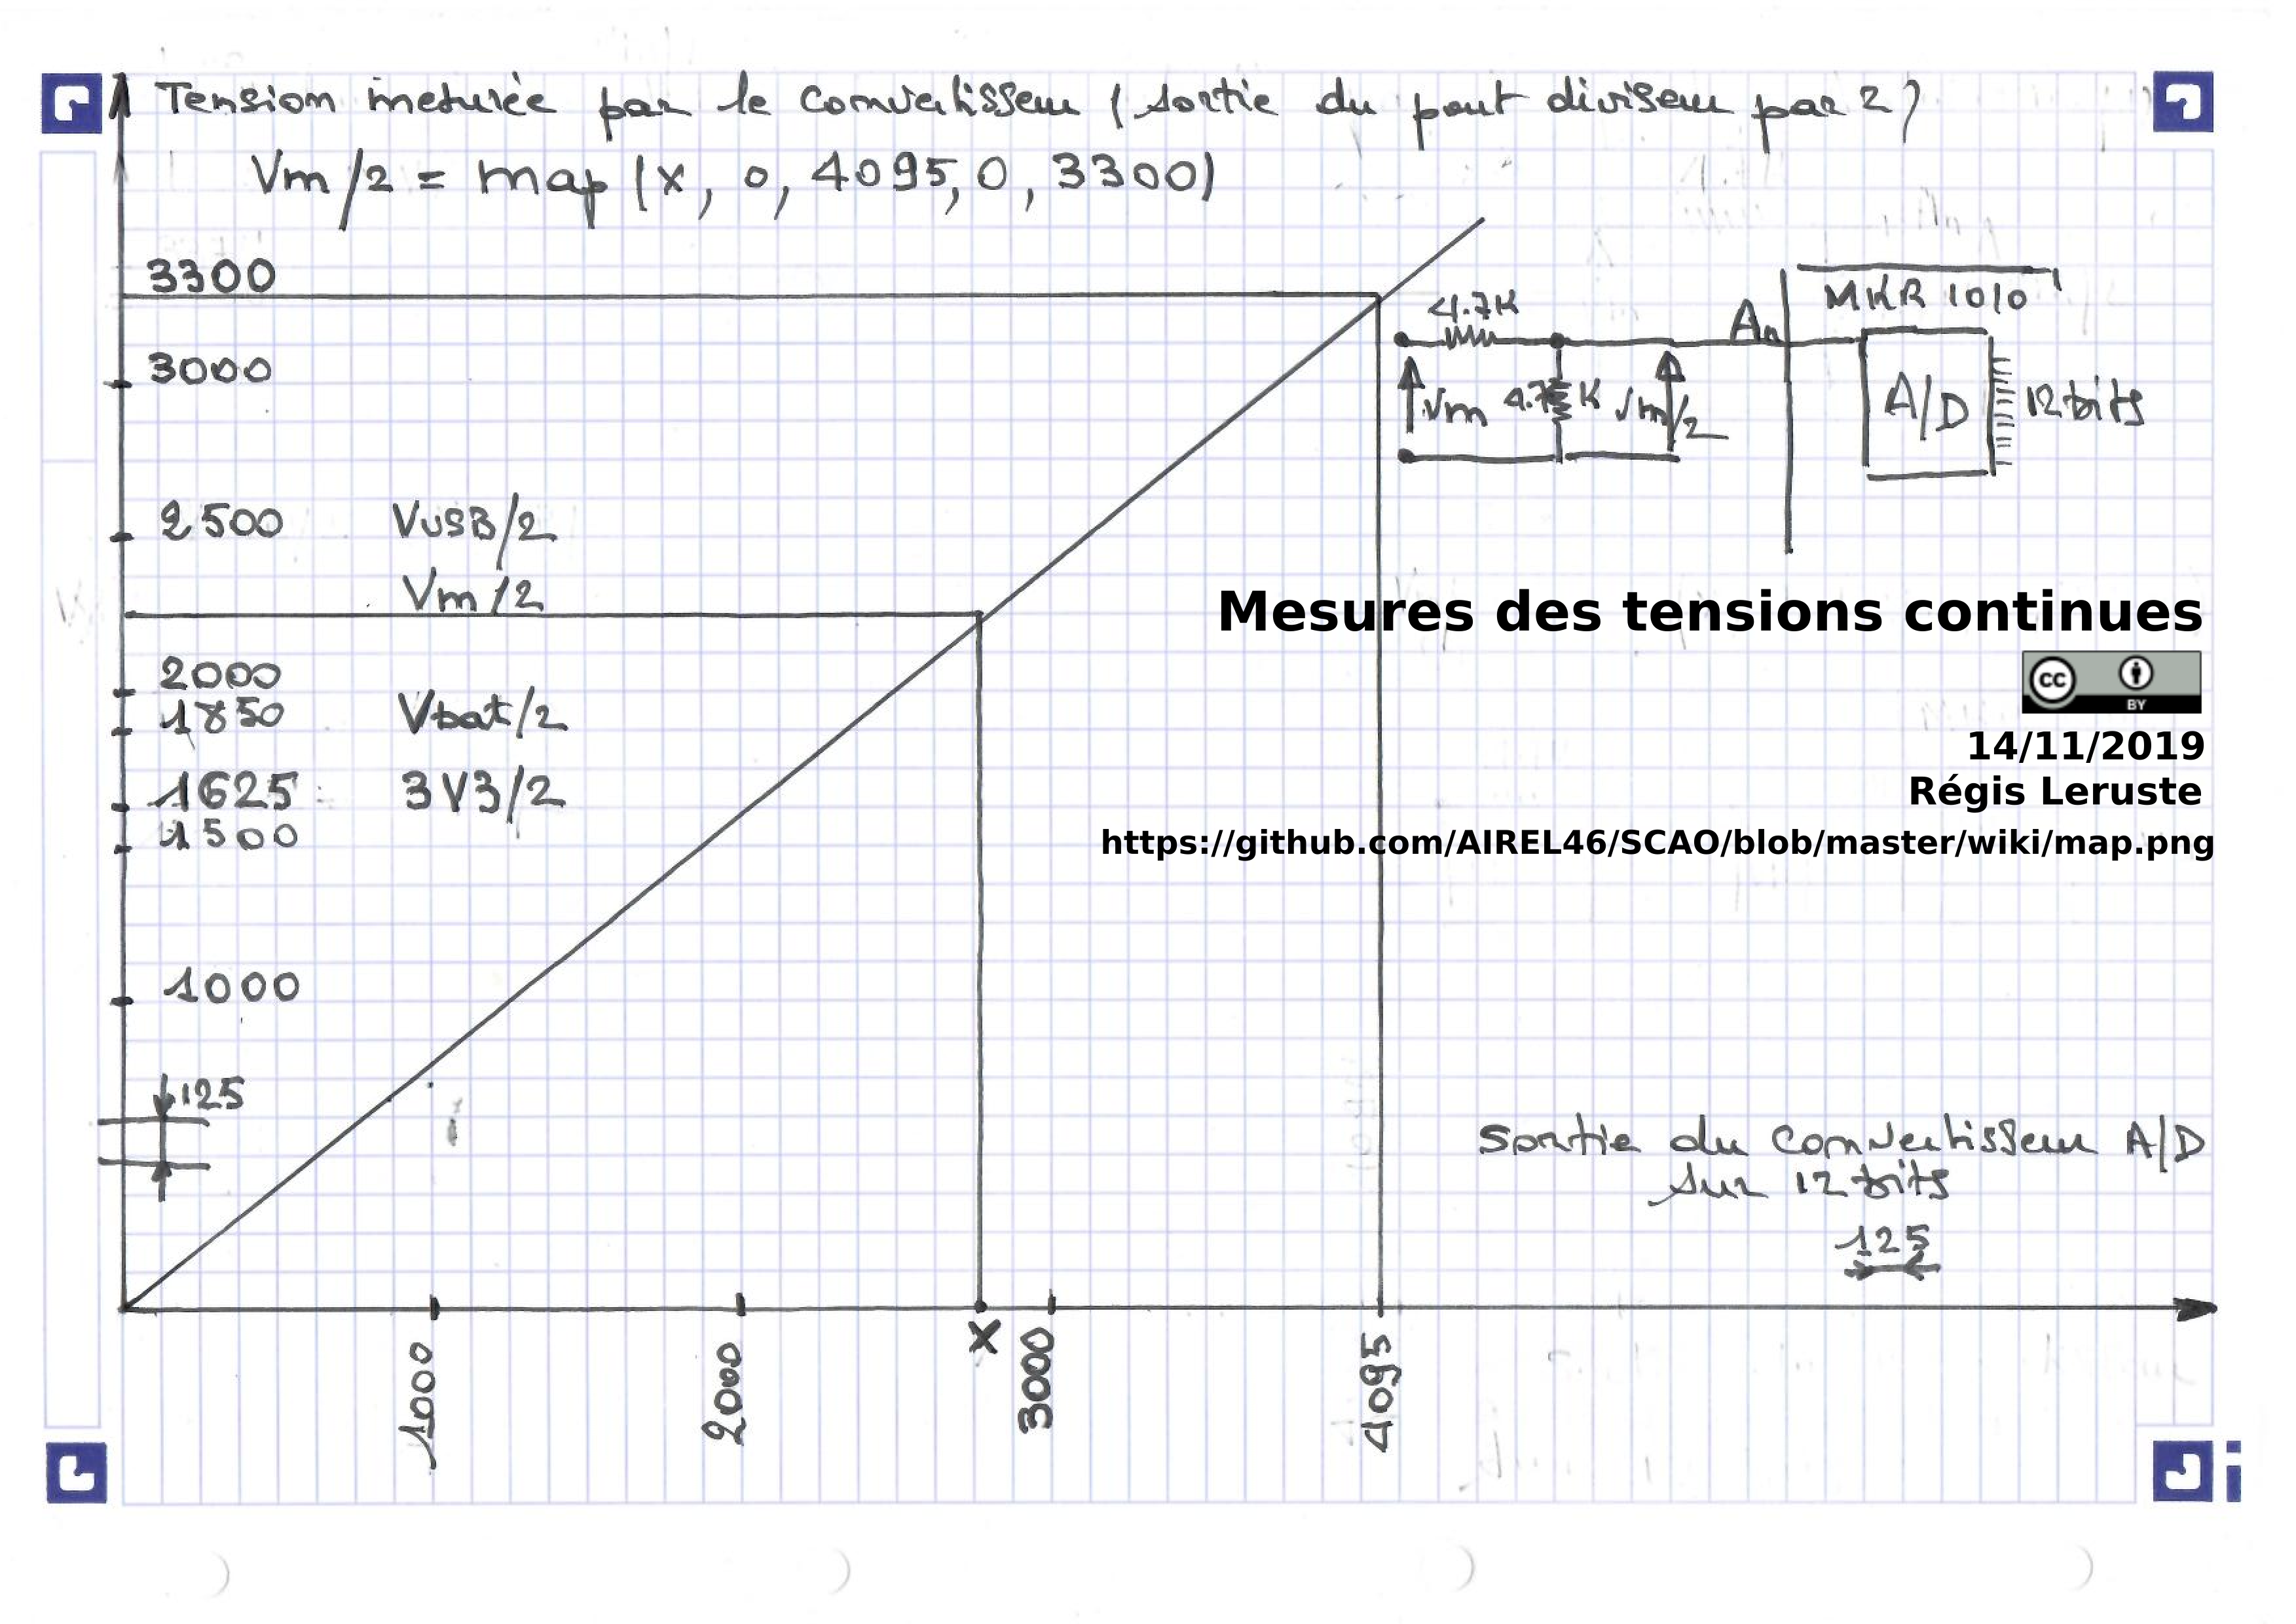 Tension mesurée par le convertisseur (sortie du pont diviseur par 2)
Vm/2 = map (x, 0, 4095, 0, 3300)
3300
3000
2500 VUSB/2
Vm/2
2000
1850 Vbat/2
1625 3V3/2
1500
1000
125
4.7K
An
MKR 1010
Vm
4.7K
Vm/2
A/D
12 bits
Mesures des tensions continues
cc BY
14/11/2019
Régis Leruste
https://github.com/AIREL46/SCAO/blob/master/wiki/map.png
Sortie du convertisseur A/D
sur 12 bits
125
1000
2000
X
3000
4095